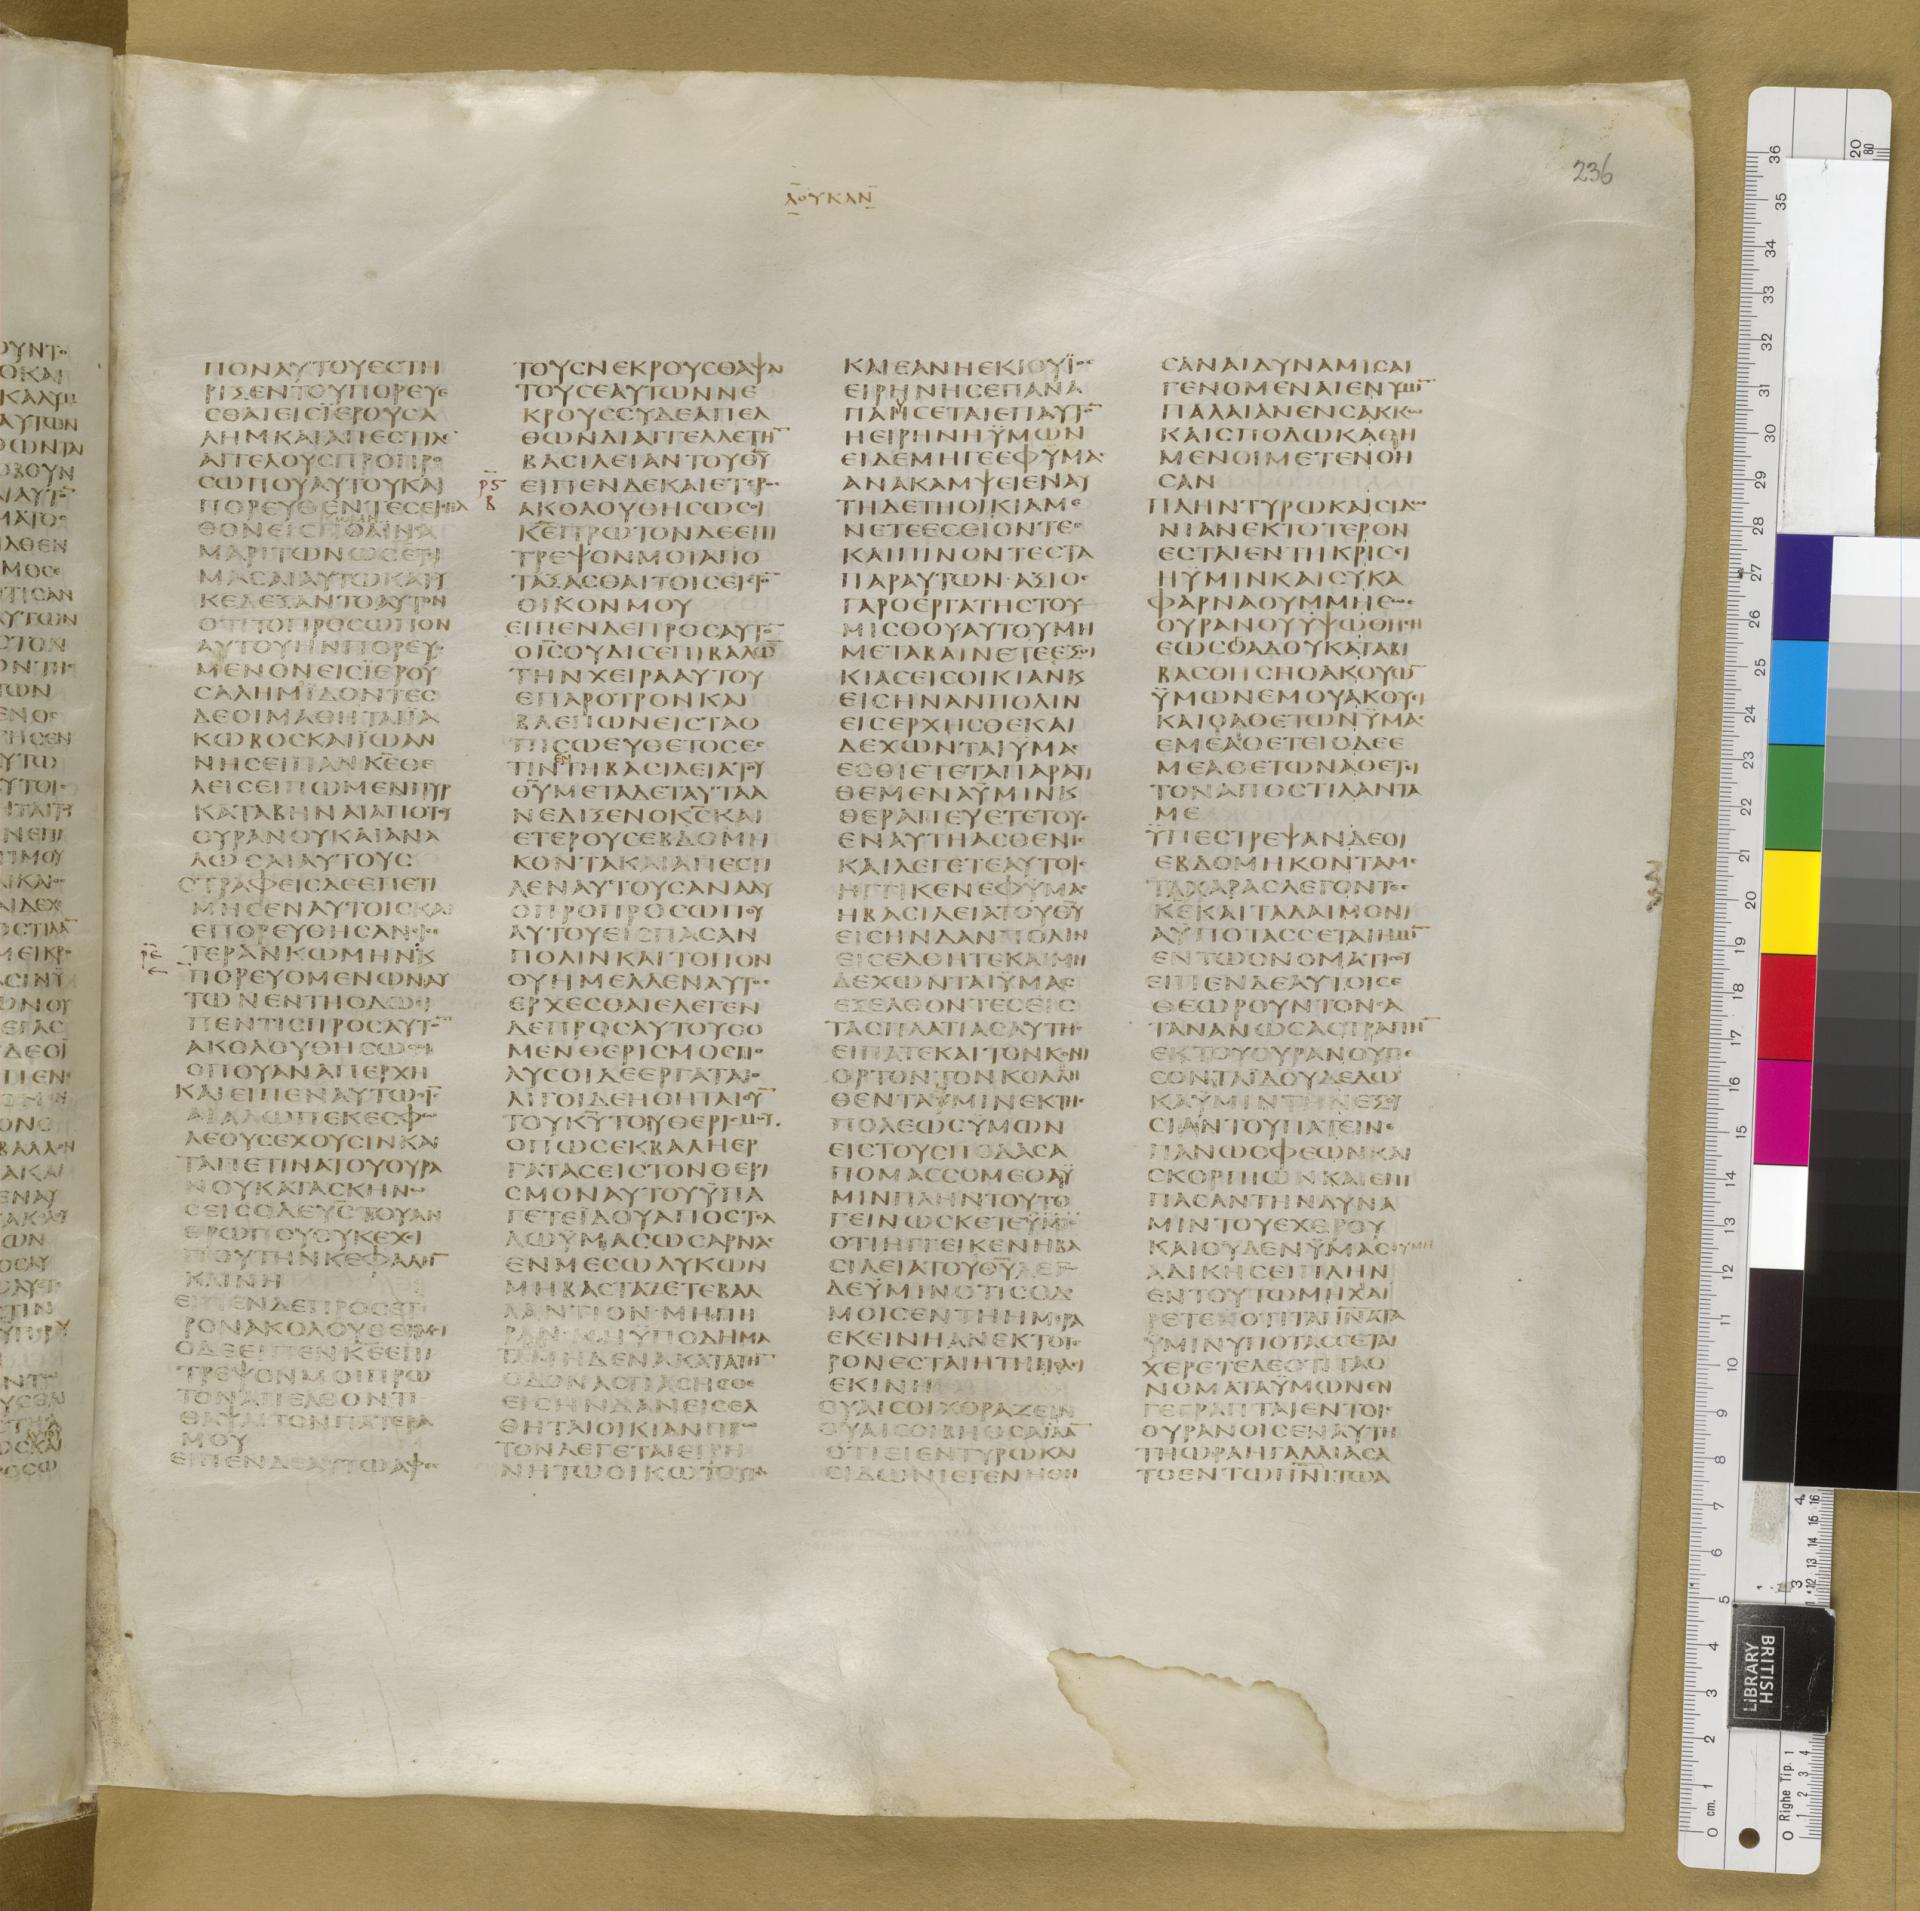 236
ΛΟΥΚΑΝ
ΠΟΝΑΥΤΟΥΕΣΤΗ
ΡΙΣΕΝΤΟΥΠΟΡΕΥΕ
ΣΘΑΙΕΙΣΪΕΡΟΥΣΑ
ΛΗΜΚΑΙΑΠΕΣΤΙΛΕ
ΑΓΓΕΛΟΥΣΠΡΟΠΡΟ
ΣΩΠΟΥΑΥΤΟΥΚΑΙ
ΠΟΡΕΥΘΕΝΤΕΣΕΙΣΗΛ
ΘΟΝΕΙΣΠΟΛΙΝΣΑ
ΜΑΡΙΤΩΝΩΣΕΤΟΙ
ΜΑΣΑΙΑΥΤΩΚΑΙΟΥ
ΚΕΔΕΞΑΝΤΟΑΥΤΟΝ
ΟΤΙΤΟΠΡΟΣΩΠΟΝ
ΑΥΤΟΥΗΝΠΟΡΕΥΟ
ΜΕΝΟΝΕΙΣΪΕΡΟΥ
ΣΑΛΗΜΪΔΟΝΤΕΣ
ΔΕΟΙΜΑΘΗΤΑΙΪΑ
ΚΩΒΟΣΚΑΙΪΩΑΝ
ΝΗΣΕΙΠΑΝΚΕΘΕ
ΛΕΙΣΕΙΠΩΜΕΝΠΥΡ
ΚΑΤΑΒΗΝΑΙΑΠΟΤΟΥ
ΟΥΡΑΝΟΥΚΑΙΑΝΑ
ΛΩΣΑΙΑΥΤΟΥΣ
ΣΤΡΑΦΕΙΣΔΕΕΠΕΤΙ
ΜΗΣΕΝΑΥΤΟΙΣΚΑΙ
ΕΠΟΡΕΥΘΗΣΑΝΕΙΣΕ
ΤΕΡΑΝΚΩΜΗΝΚ
ΠΟΡΕΥΟΜΕΝΩΝΑΥ
ΤΩΝΕΝΤΗΟΔΩΕΙ
ΠΕΝΤΙΣΠΡΟΣΑΥΤΟΝ
ΑΚΟΛΟΥΘΗΣΩΣΟΙ
ΟΠΟΥΑΝΑΠΕΡΧΗ
ΚΑΙΕΙΠΕΝΑΥΤΩΟΙΣ
ΑΙΑΛΩΠΕΚΕΣΦΩ
ΛΕΟΥΣΕΧΟΥΣΙΝΚΑΙ
ΤΑΠΕΤΙΝΑΤΟΥΟΥΡΑ
ΝΟΥΚΑΤΑΣΚΗΝΩ
ΣΕΙΣΟΔΕΥΣΤΟΥΑΝ
ΘΡΩΠΟΥΟΥΚΕΧΕΙ
ΠΟΥΤΗΝΚΕΦΑΛΗΝ
ΚΛΙΝΗ
ΕΙΠΕΝΔΕΠΡΟΣΕΤΕ
ΡΟΝΑΚΟΛΟΥΘΕΙΜΟΙ
ΟΔΕΕΙΠΕΝΚΕΕΠΙ
ΤΡΕΨΟΝΜΟΙΠΡΩ
ΤΟΝΑΠΕΛΘΟΝΤΙ
ΘΑΨΑΙΤΟΝΠΑΤΕΡΑ
ΜΟΥ
ΕΙΠΕΝΔΕΑΥΤΩΑΦΕΣ
ΤΟΥΣΝΕΚΡΟΥΣΘΑΨΑΙ
ΤΟΥΣΕΑΥΤΩΝΝΕ
ΚΡΟΥΣΣΥΔΕΑΠΕΛ
ΘΩΝΔΙΑΓΓΕΛΛΕΤΗΝ
ΒΑΣΙΛΕΙΑΝΤΟΥΘΥ
ΕΙΠΕΝΔΕΚΑΙΕΤΕΡΟΣ
ΑΚΟΛΟΥΘΗΣΩΣΟΙ
ΚΕΠΡΩΤΟΝΔΕΕΠΙ
ΤΡΕΨΟΝΜΟΙΑΠΟ
ΤΑΞΑΣΘΑΙΤΟΙΣΕΙΣΤΟΝ
ΟΙΚΟΝΜΟΥ
ΕΙΠΕΝΔΕΠΡΟΣΑΥΤΟΝ
ΟΙΣΟΥΔΙΣΕΠΙΒΑΛΩΝ
ΤΗΝΧΕΙΡΑΑΥΤΟΥ
ΕΠΑΡΟΤΡΟΝΚΑΙ
ΒΛΕΠΩΝΕΙΣΤΑΟ
ΠΙΣΩΕΥΘΕΤΟΣΕΣ
ΤΙΝΤΗΒΑΣΙΛΕΙΑΤΟΥ
ΘΥΜΕΤΑΔΕΤΑΥΤΑΑ
ΝΕΔΙΞΕΝΟΚΣΚΑΙ
ΕΤΕΡΟΥΣΕΒΔΟΜΗ
ΚΟΝΤΑΚΑΙΑΠΕΣΤΙ
ΛΕΝΑΥΤΟΥΣΑΝΑΔΥ
ΟΠΡΟΠΡΟΣΩΠΟΥ
ΑΥΤΟΥΕΙΣΠΑΣΑΝ
ΠΟΛΙΝΚΑΙΤΟΠΟΝ
ΟΥΗΜΕΛΛΕΝΑΥΤΟΣ
ΕΡΧΕΣΘΑΙΕΛΕΓΕΝ
ΔΕΠΡΟΣΑΥΤΟΥΣΟ
ΜΕΝΘΕΡΙΣΜΟΣΠΟ
ΛΥΣΟΙΔΕΕΡΓΑΤΑΙΟ
ΛΙΓΟΙΔΕΗΘΗΤΑΙΟΥΝ
ΤΟΥΚΥΤΟΥΘΕΡΙΣΜΟΥ
ΟΠΩΣΕΚΒΑΛΗΕΡ
ΓΑΤΑΣΕΙΣΤΟΝΘΕΡΙ
ΣΜΟΝΑΥΤΟΥΫΠΑ
ΓΕΤΕΪΔΟΥΑΠΟΣΤΕΛ
ΛΩΫΜΑΣΩΣΑΡΝΑΣ
ΕΝΜΕΣΩΛΥΚΩΝ
ΜΗΒΑΣΤΑΖΕΤΕΒΑΛ
ΛΑΝΤΙΟΝΜΗΠΗ
ΡΑΝΜΗΫΠΟΔΗΜΑ
ΤΑΜΗΔΕΝΑΚΑΤΑΤΗΝ
ΟΔΟΝΑΣΠΑΣΗΣΘΕ
ΕΙΣΗΝΔΑΝΕΙΣΕΛ
ΘΗΤΑΙΟΙΚΙΑΝΠΡΩ
ΤΟΝΛΕΓΕΤΑΙΕΙΡΗ
ΝΗΤΩΟΙΚΩΤΟΥΤΩ
ΚΑΙΕΑΝΗΕΚΙΟΥΪΟΣ
ΕΙΡΗΝΗΣΕΠΑΝΑ
ΠΑΗΣΕΤΑΙΕΠΑΥΤΟΝ
ΗΕΙΡΗΝΗΫΜΩΝ
ΕΙΔΕΜΗΓΕΕΦΫΜΑΣ
ΑΝΑΚΑΜΨΕΙΕΝΑΥ
ΤΗΔΕΤΗΟΙΚΙΑΜΕ
ΝΕΤΕΕΣΘΙΟΝΤΕΣ
ΚΑΙΠΙΝΟΝΤΕΣΤΑ
ΠΑΡΑΥΤΩΝΑΞΙΟΣ
ΓΑΡΟΕΡΓΑΤΗΣΤΟΥ
ΜΙΣΘΟΥΑΥΤΟΥΜΗ
ΜΕΤΑΒΑΙΝΕΤΕΕΞΟΙ
ΚΙΑΣΕΙΣΟΙΚΙΑΝΚ
ΕΙΣΗΝΑΝΠΟΛΙΝ
ΕΙΣΕΡΧΗΣΘΕΚΑΙ
ΔΕΧΩΝΤΑΙΫΜΑΣ
ΕΣΘΙΕΤΕΤΑΠΑΡΑΤΙ
ΘΕΜΕΝΑΫΜΙΝΚ
ΘΕΡΑΠΕΥΕΤΕΤΟΥΣ
ΕΝΑΥΤΗΑΣΘΕΝΙΣ
ΚΑΙΛΕΓΕΤΕΑΥΤΟΙΣ
ΗΓΓΙΚΕΝΕΦΫΜΑΣ
ΗΒΑΣΙΛΕΙΑΤΟΥΘΥ
ΕΙΣΗΝΔΑΝΠΟΛΙΝ
ΕΙΣΕΛΘΗΤΕΚΑΙΜΗ
ΔΕΧΩΝΤΑΙΫΜΑΣ
ΕΞΕΛΘΟΝΤΕΣΕΙΣ
ΤΑΣΠΛΑΤΙΑΣΑΥΤΗΣ
ΕΙΠΑΤΕΚΑΙΤΟΝΚΟΝΙ
ΟΡΤΟΝΤΟΝΚΟΛΛΗ
ΘΕΝΤΑΫΜΙΝΕΚΤΗΣ
ΠΟΛΕΩΣΫΜΩΝ
ΕΙΣΤΟΥΣΠΟΔΑΣΑ
ΠΟΜΑΣΣΟΜΕΘΑΫ
ΜΙΝΠΛΗΝΤΟΥΤΟ
ΓΕΙΝΩΣΚΕΤΕ
ΟΤΙΗΓΓΕΙΚΕΝΗΒΑ
ΣΙΛΕΙΑΤΟΥΘΥΛΕΓΩ
ΔΕΫΜΙΝΟΤΙΣΟΔΟ
ΜΟΙΣΕΝΤΗΗΜΕΡΑ
ΕΚΕΙΝΗΑΝΕΚΤΟΤΕ
ΡΟΝΕΣΤΑΙΗΤΗΠΟΛΙ
ΕΚΙΝΗ
ΟΥΑΙΣΟΙΧΟΡΑΖΕΙΝ
ΟΥΑΙΣΟΙΒΗΘΣΑΪΔΑΝ
ΟΤΙΕΙΕΝΤΥΡΩΚΑΙ
ΣΙΔΩΝΙΕΓΕΝΗΘΗ
ΣΑΝΑΙΔΥΝΑΜΙΣΑΙ
ΓΕΝΟΜΕΝΑΙΕΝΥΜΙΝ
ΠΑΛΑΙΑΝΕΝΣΑΚΚΩ
ΚΑΙΣΠΟΔΩΚΑΘΗ
ΜΕΝΟΙΜΕΤΕΝΟΗ
ΣΑΝ
ΠΛΗΝΤΥΡΩΚΑΙΣΙΔΩ
ΝΙΑΝΕΚΤΟΤΕΡΟΝ
ΕΣΤΑΙΕΝΤΗΚΡΙΣΕΙ
ΗΫΜΙΝΚΑΙΣΥΚΑ
ΦΑΡΝΑΟΥΜΜΗΕΩΣ
ΟΥΡΑΝΟΥΥΨΩΘΗΣΗ
ΕΩΣΑΔΟΥΚΑΤΑΒΙ
ΒΑΣΘΗΣΗΟΑΚΟΥΩΝ
ΫΜΩΝΕΜΟΥΑΚΟΥΕΙ
ΚΑΙΟΑΘΕΤΩΝΫΜΑΣ
ΕΜΕΑΘΕΤΕΙΟΔΕΕ
ΜΕΑΘΕΤΩΝΑΘΕΤΕΙ
ΤΟΝΑΠΟΣΤΙΛΑΝΤΑ
ΜΕ
ΫΠΕΣΤΡΕΨΑΝΔΕΟΙ
ΕΒΔΟΜΗΚΟΝΤΑΜΕ
ΤΑΧΑΡΑΣΛΕΓΟΝΤΕΣ
ΚΕΚΑΙΤΑΔΑΙΜΟΝΙ
ΑΫΠΟΤΑΣΣΕΤΑΙΗΜΙΝ
ΕΝΤΩΟΝΟΜΑΤΙΣΟΥ
ΕΙΠΕΝΔΕΑΥΤΟΙΣΕ
ΘΕΩΡΟΥΝΤΟΝΣΑ
ΤΑΝΑΝΩΣΑΣΤΡΑΠΗΝ
ΕΚΤΟΥΟΥΡΑΝΟΥΠΕ
ΣΟΝΤΑΪΔΟΥΔΕΔΩ
ΚΑΫΜΙΝΤΗΝΕΞΟΥ
ΣΙΑΝΤΟΥΠΑΤΕΙΝΕ
ΠΑΝΩΟΦΕΩΝΚΑΙ
ΣΚΟΡΠΙΩΝΚΑΙΕΠΙ
ΠΑΣΑΝΤΗΝΔΥΝΑ
ΜΙΝΤΟΥΕΧΘΡΟΥ
ΚΑΙΟΥΔΕΝΫΜΑΣΟΥΜΗ
ΑΔΙΚΗΣΕΙΠΛΗΝ
ΕΝΤΟΥΤΩΜΗΧΑΙ
ΡΕΤΕΟΤΙΤΑΠΝΑΤΑ
ΥΜΙΝΥΠΟΤΑΣΣΕΤΑΙ
ΧΕΡΕΤΕΔΕΟΤΙΤΑΟ
ΝΟΜΑΤΑΫΜΩΝΕΝ
ΓΕΓΡΑΠΤΑΙΕΝΤΟΙΣ
ΟΥΡΑΝΟΙΣΕΝΑΥΤΗ
ΤΗΩΡΑΗΓΑΛΛΙΑΣΑ
ΤΟΕΝΤΩΠΝΙΤΩΑ
BRITISH
LIBRARY